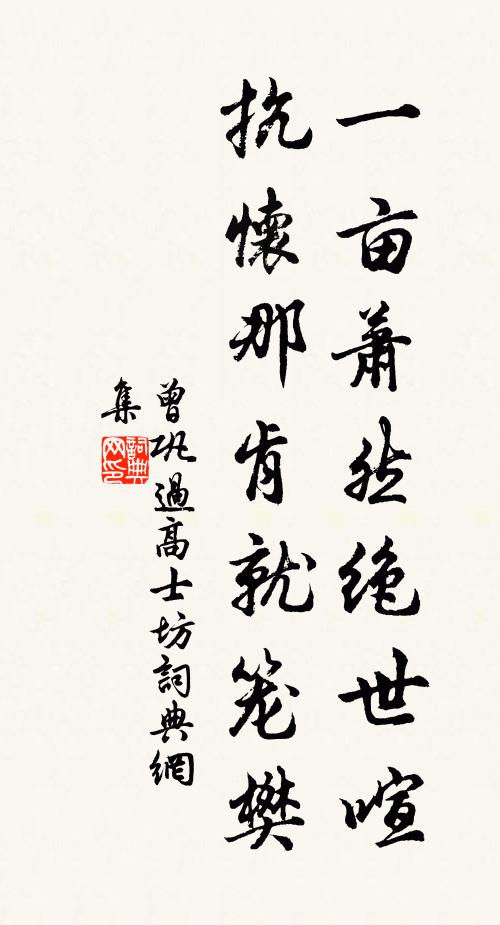 一亩萧然绝世喧
抗懷那肯就笼樊
曾巩過高士坊詞典網
集
詞典网印